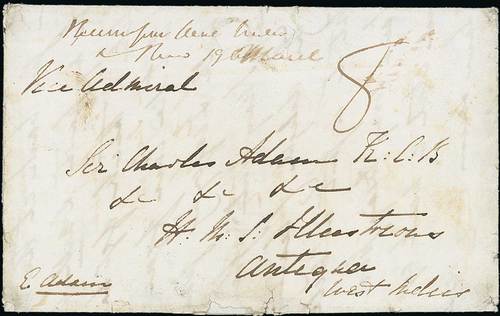 19th March
8
Vice Admiral
Sir Charles Adam K.C.B
&c &c &c
H.M.S. Illustrious
Antigua
West Indies
E Adam